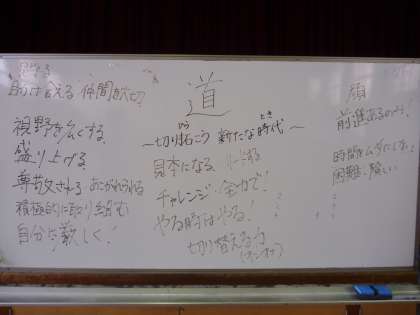 助け合える 仲間を大切
視野を広くする
盛り上げる
尊敬される あこがれられる
積極的に取り組む
自分に厳しく!
道
みち
とき
〜切り拓こう 新たな時代〜
見本になる リードする
チャレンジ・全力で!
やる時はやる!
切り替える力
(オンオフ)
顔
前進あるのみ!
時間をムダにしない
困難・険しい